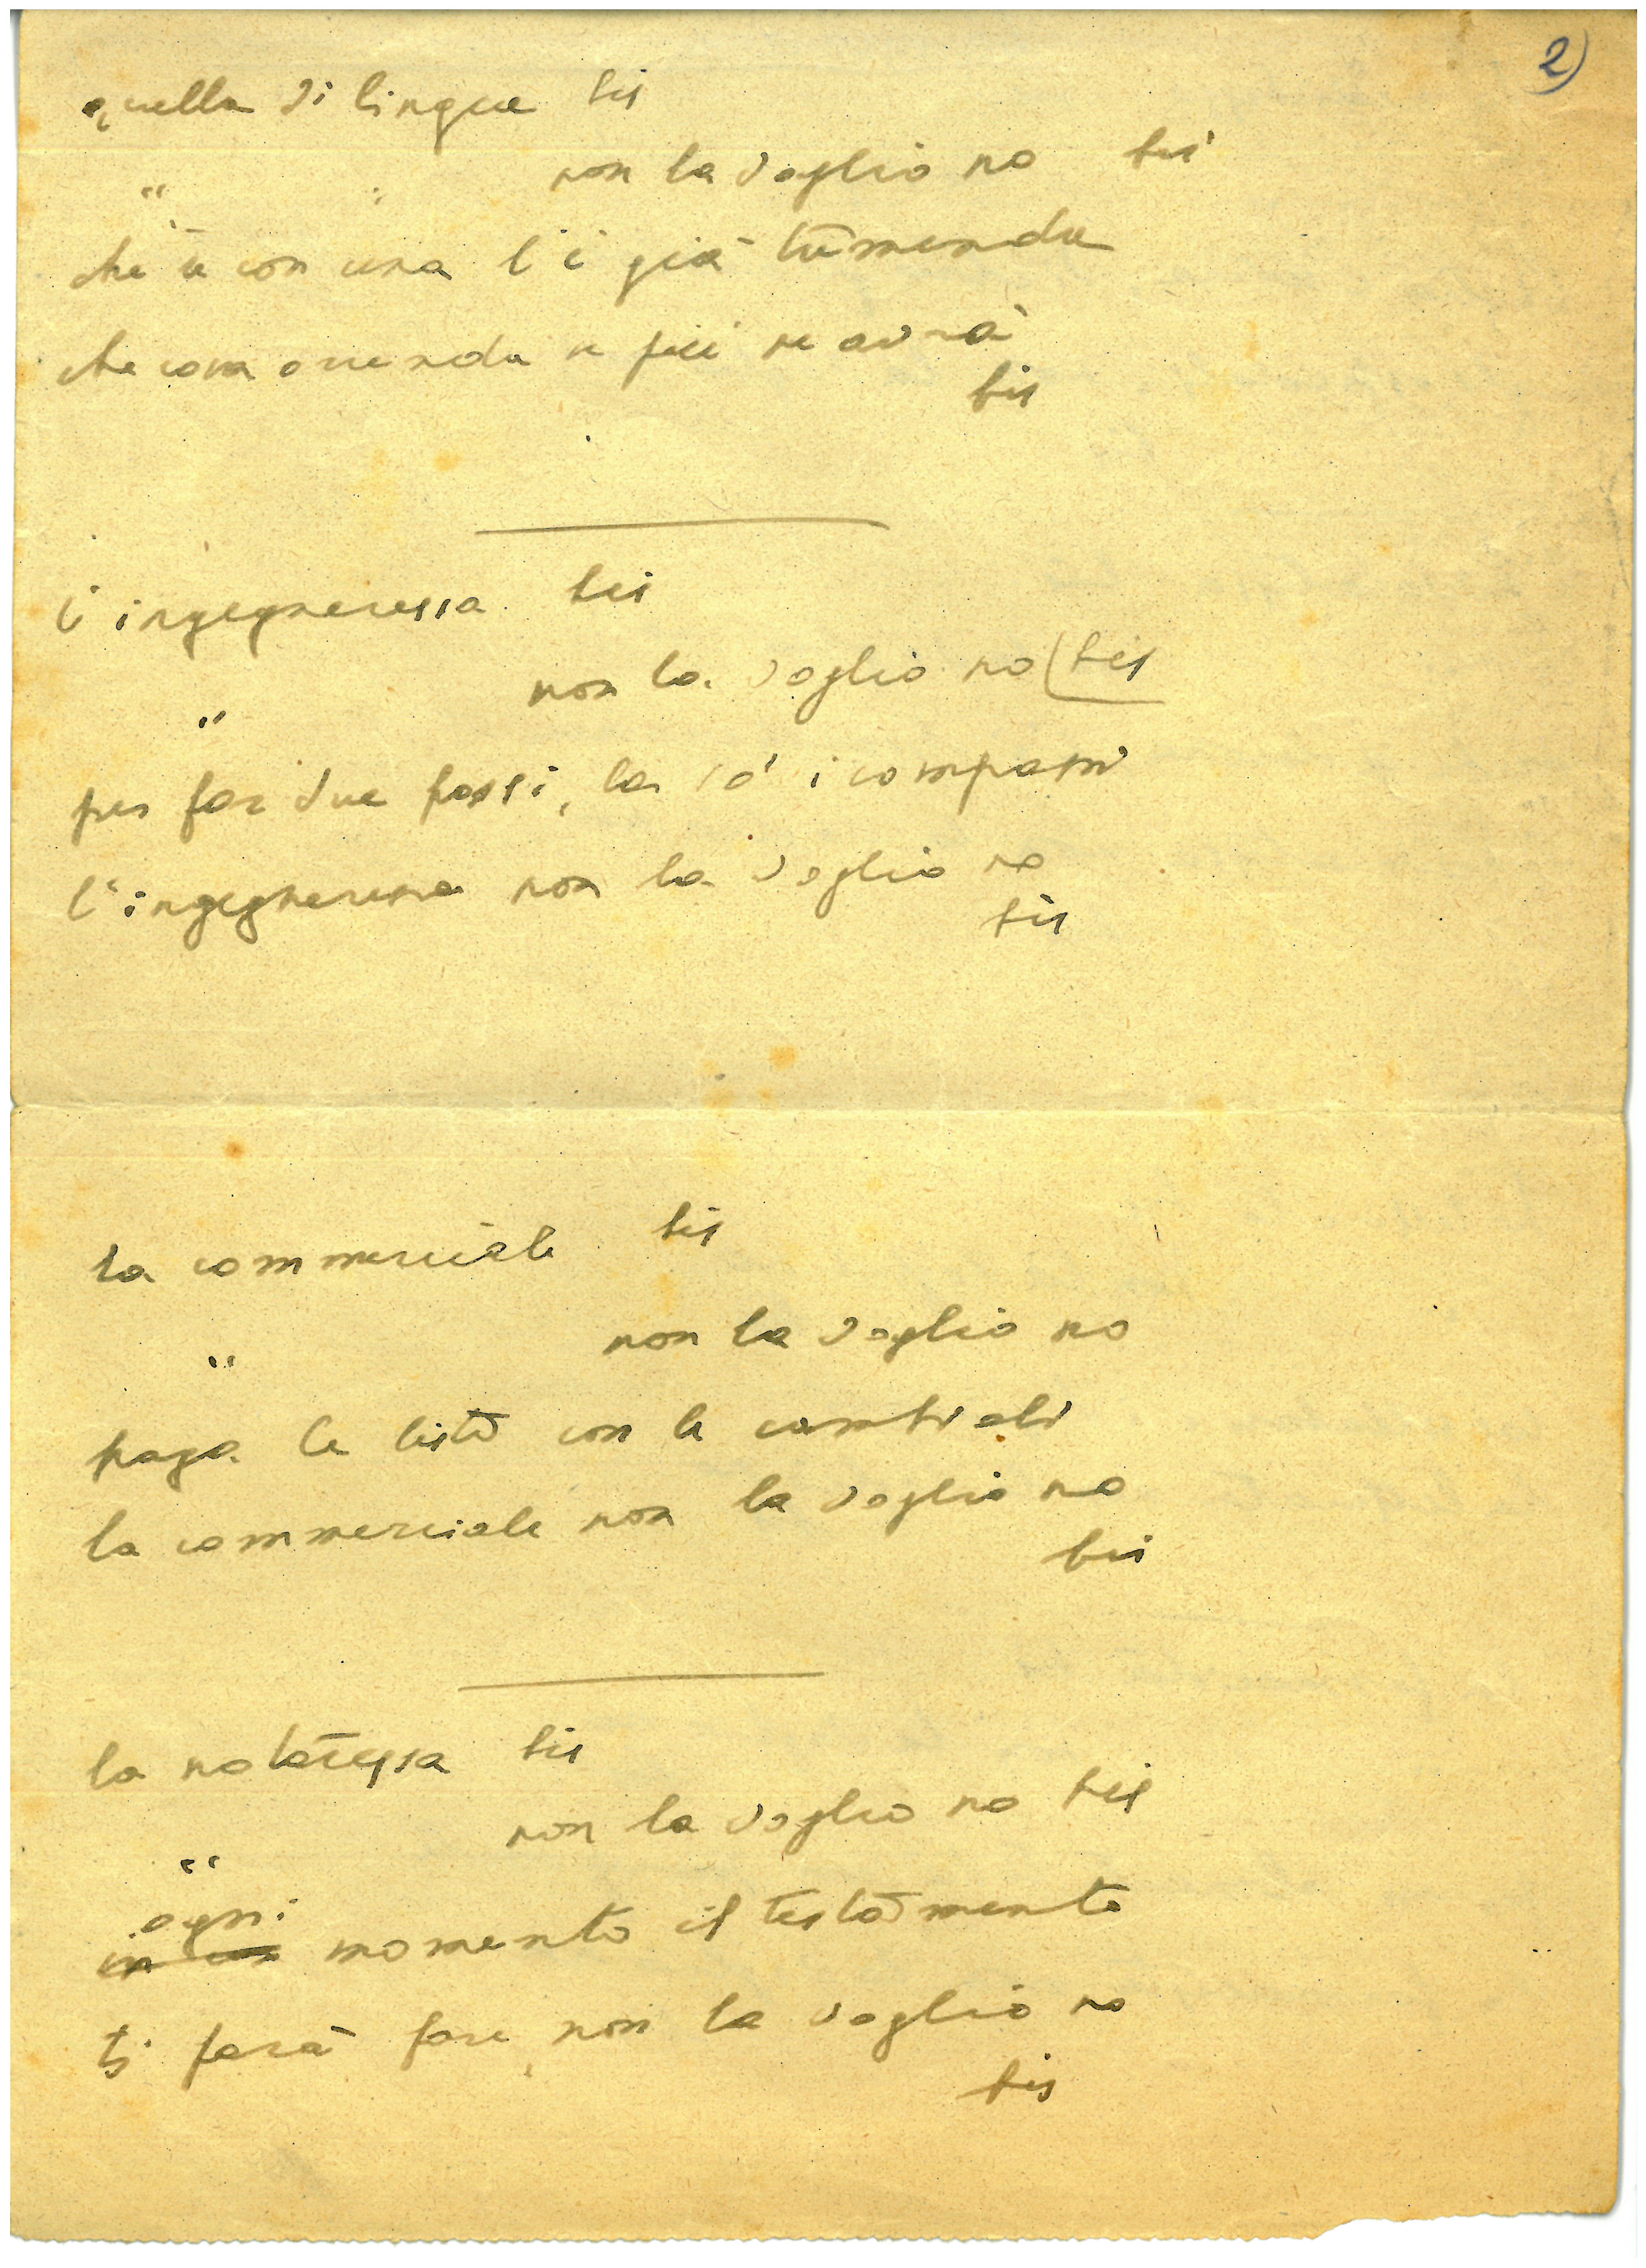 2)
quella di lingue bis
" " non la voglio no bis
che se con una l'è già tremenda
che cosa orrenda se più ne avrà
bis
l'ingegneressa bis
" non la voglio no bis
per far due passi, la vò i compassi
l'ingegneressa non la voglio no
bis
la commerciale bis
" non la voglio no
paga le liste con le cambiali
la commerciale non la voglio no
bis
la notaressa bis
" non la voglio no bis
ogni
in un momento il testamento
ti farà fare, non la voglio no
bis